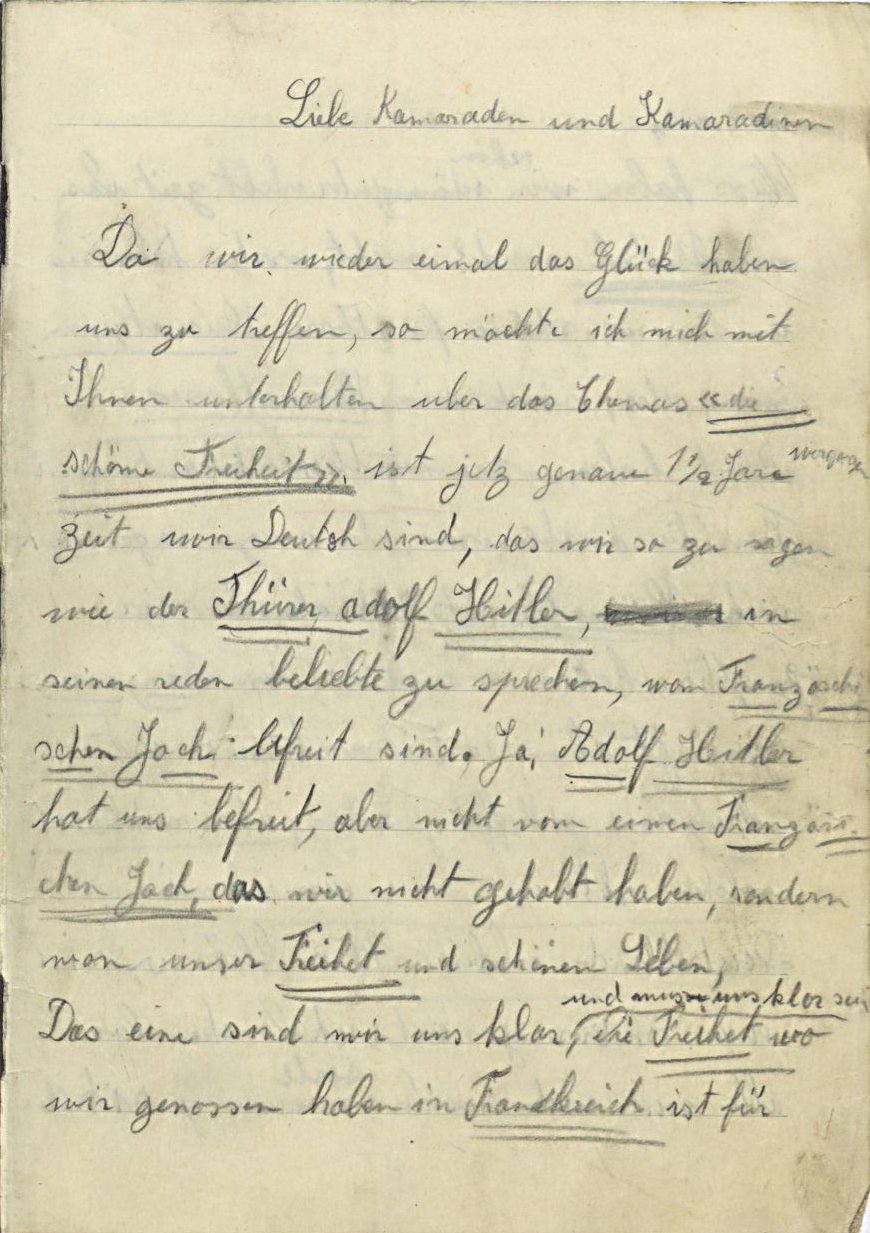 Liebe Kamaraden und Kamaradinen
Da wir wieder eimal das Glück haben
uns zu treffen, so möchte ich mich mit
Ihnen unterhalten uber das Themas « die
schöne Freiheit ». ist jetz genaue 1 1/2 Jare
zeit wir Deutsh sind, das wir so zu sagen
wie der Führer adolf Hitler, in
seinen reden beliebte zu sprechen, vom Französchi
schen Joch befreit sind. Ja, Adolf Hitler
hat uns befreit, aber nicht vom einen Französi
chen Joch, das wir nicht gehabt haben, sondern
von unser Freihet und schönem Leben,
und muss uns klar sein
Das eine sind wir uns klar, die Freihet wo
wir genossen haben in Frankreich ist für